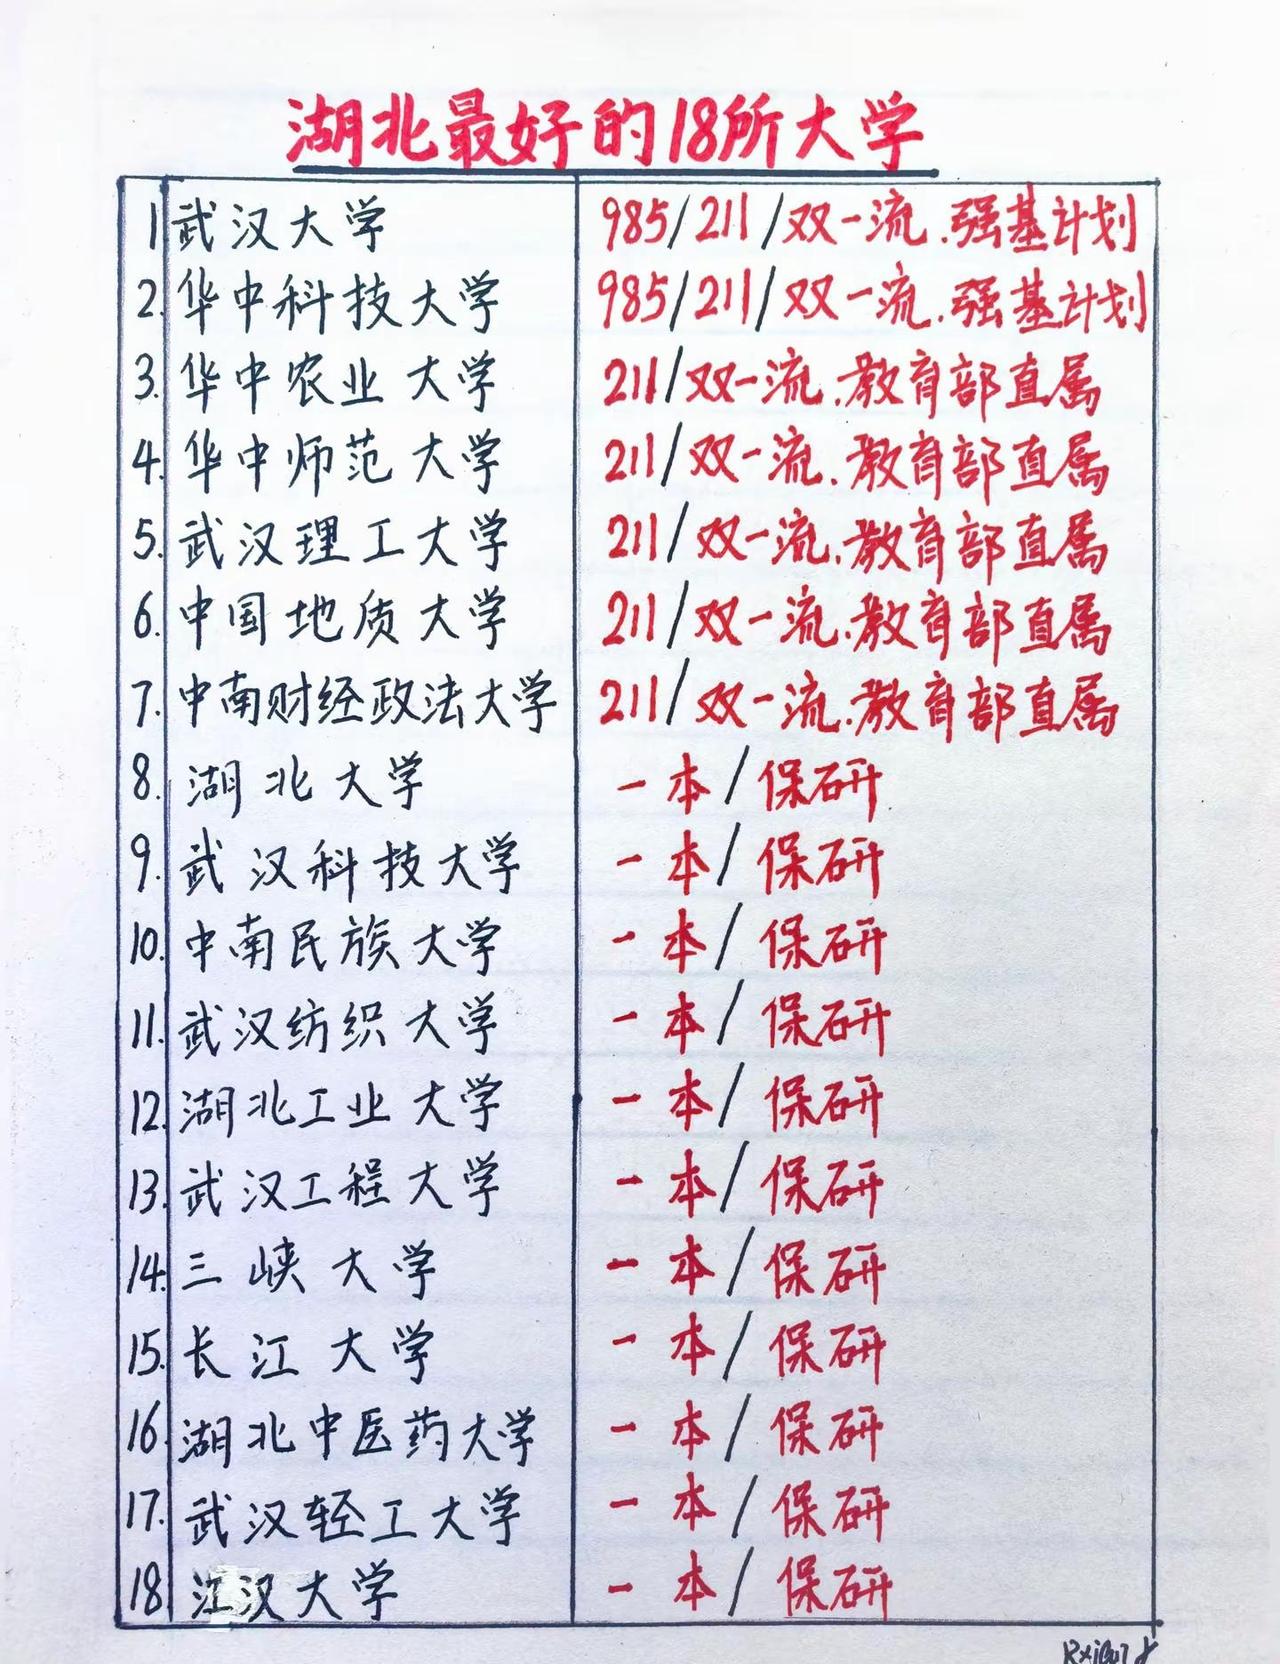 湖北最好的18所大学
1 武汉大学 985/211/双一流.强基计划
2. 华中科技大学 985/211/双一流.强基计划
3. 华中农业大学 211/双一流.教育部直属
4. 华中师范大学 211/双一流.教育部直属
5. 武汉理工大学 211/双一流.教育部直属
6. 中国地质大学 211/双一流.教育部直属
7. 中南财经政法大学 211/双一流.教育部直属
8. 湖北大学 一本/保研
9. 武汉科技大学 一本/保研
10. 中南民族大学 一本/保研
11. 武汉纺织大学 一本/保研
12. 湖北工业大学 一本/保研
13. 武汉工程大学 一本/保研
14. 三峡大学 一本/保研
15. 长江大学 一本/保研
16. 湖北中医药大学 一本/保研
17. 武汉轻工大学 一本/保研
18. 江汉大学 一本/保研